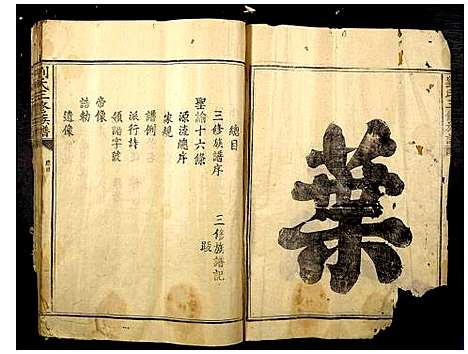 葉
總目
三修族譜序
聖諭十六條
源流總序
家規
譜例
派行詩
領譜字號
帝像
誥勅
遺像
三修族譜記
跋
劉氏三修族譜
總目